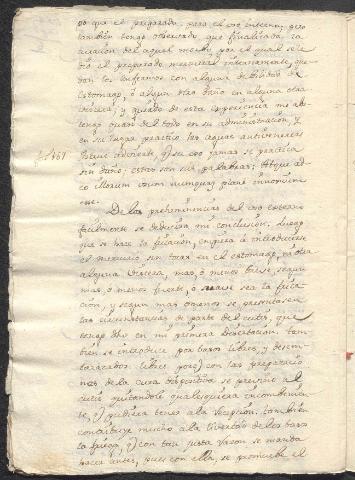 do que el preparado para el uso interno; pero
tambien tengo observado que finalizada la
curacion del aquel morbo por el qual se le
dio el preparado mercurial internamente, que
dan los enfermos con alguna debilidad de
estomago, ó algun otro daño en alguna otra
viscera; y guiado de esta experiencia me abs
tengo quasi del todo en su administracion, y
en su lugar practico las aguas antivenereas
fol. 161
sin daño; estas son sus palabras: Atque ad
eo illorum usum nunquam sine
De las prehominencias del uso externo
facilmente se deducira mi conclusion. Luego
que se hace la fricacion, empieza á introducirse
el mercurio sin tocar en el estomago, ni otra
alguna viscera, mas, ó menos breve, segun
mas, ó menos fuerte, ó suave sea la frica
cion, y segun mas ó menos se presentasen
las circunstancias de parte del cutis, que
tengo dho en mi primera disertacion. Tam
bien se introduce por baros libres, y desem
barazados libres porq con las preparacio
nes de la cura dispositiva se previno al
cutis quitandole qualesquiera inconvenien
te, q pudiera tener a la recepcion. Tambien
contribuye mucho a la libertad de los baros
la fuego, q con tan justa razon se manda
hacer antes, pues con ella, se promueve el